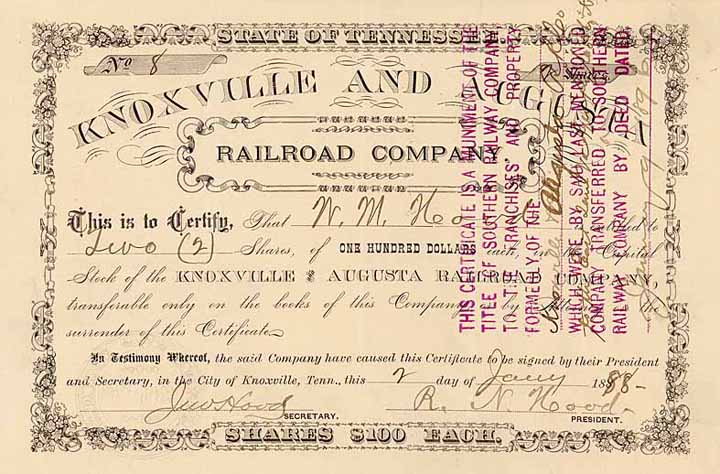 STATE OF TENNESSEE
No 8
KNOXVILLE AND AUGUSTA
RAILROAD COMPANY
This is to Certify, That W. M. Hood is entitled to
Two (2) Shares, of ONE HUNDRED DOLLARS each, in the Capital
Stock of the KNOXVILLE and AUGUSTA RAILROAD COMPANY,
transferable only on the books of this Company
surrender of this Certificate.
In Testimony Whereof, the said Company have caused this Certificate to be signed by their President
and Secretary, in the City of Knoxville, Tenn., this 2 day of Jany 1888-
Jno Hood SECRETARY. R. N. Hood. PRESIDENT.
SHARES $100 EACH.
THIS CERTIFICATE IS A MUNIMENT OF THE
TITLE OF SOUTHERN RAILWAY COMPANY
TO THE FRANCHISES AND PROPERTY
FORMERLY OF THE
Knoxville Augusta
WHICH WERE BY SAID LAST MENTIONED
COMPANY TRANSFERRED TO SOUTHERN
RAILWAY COMPANY BY DEED DATED